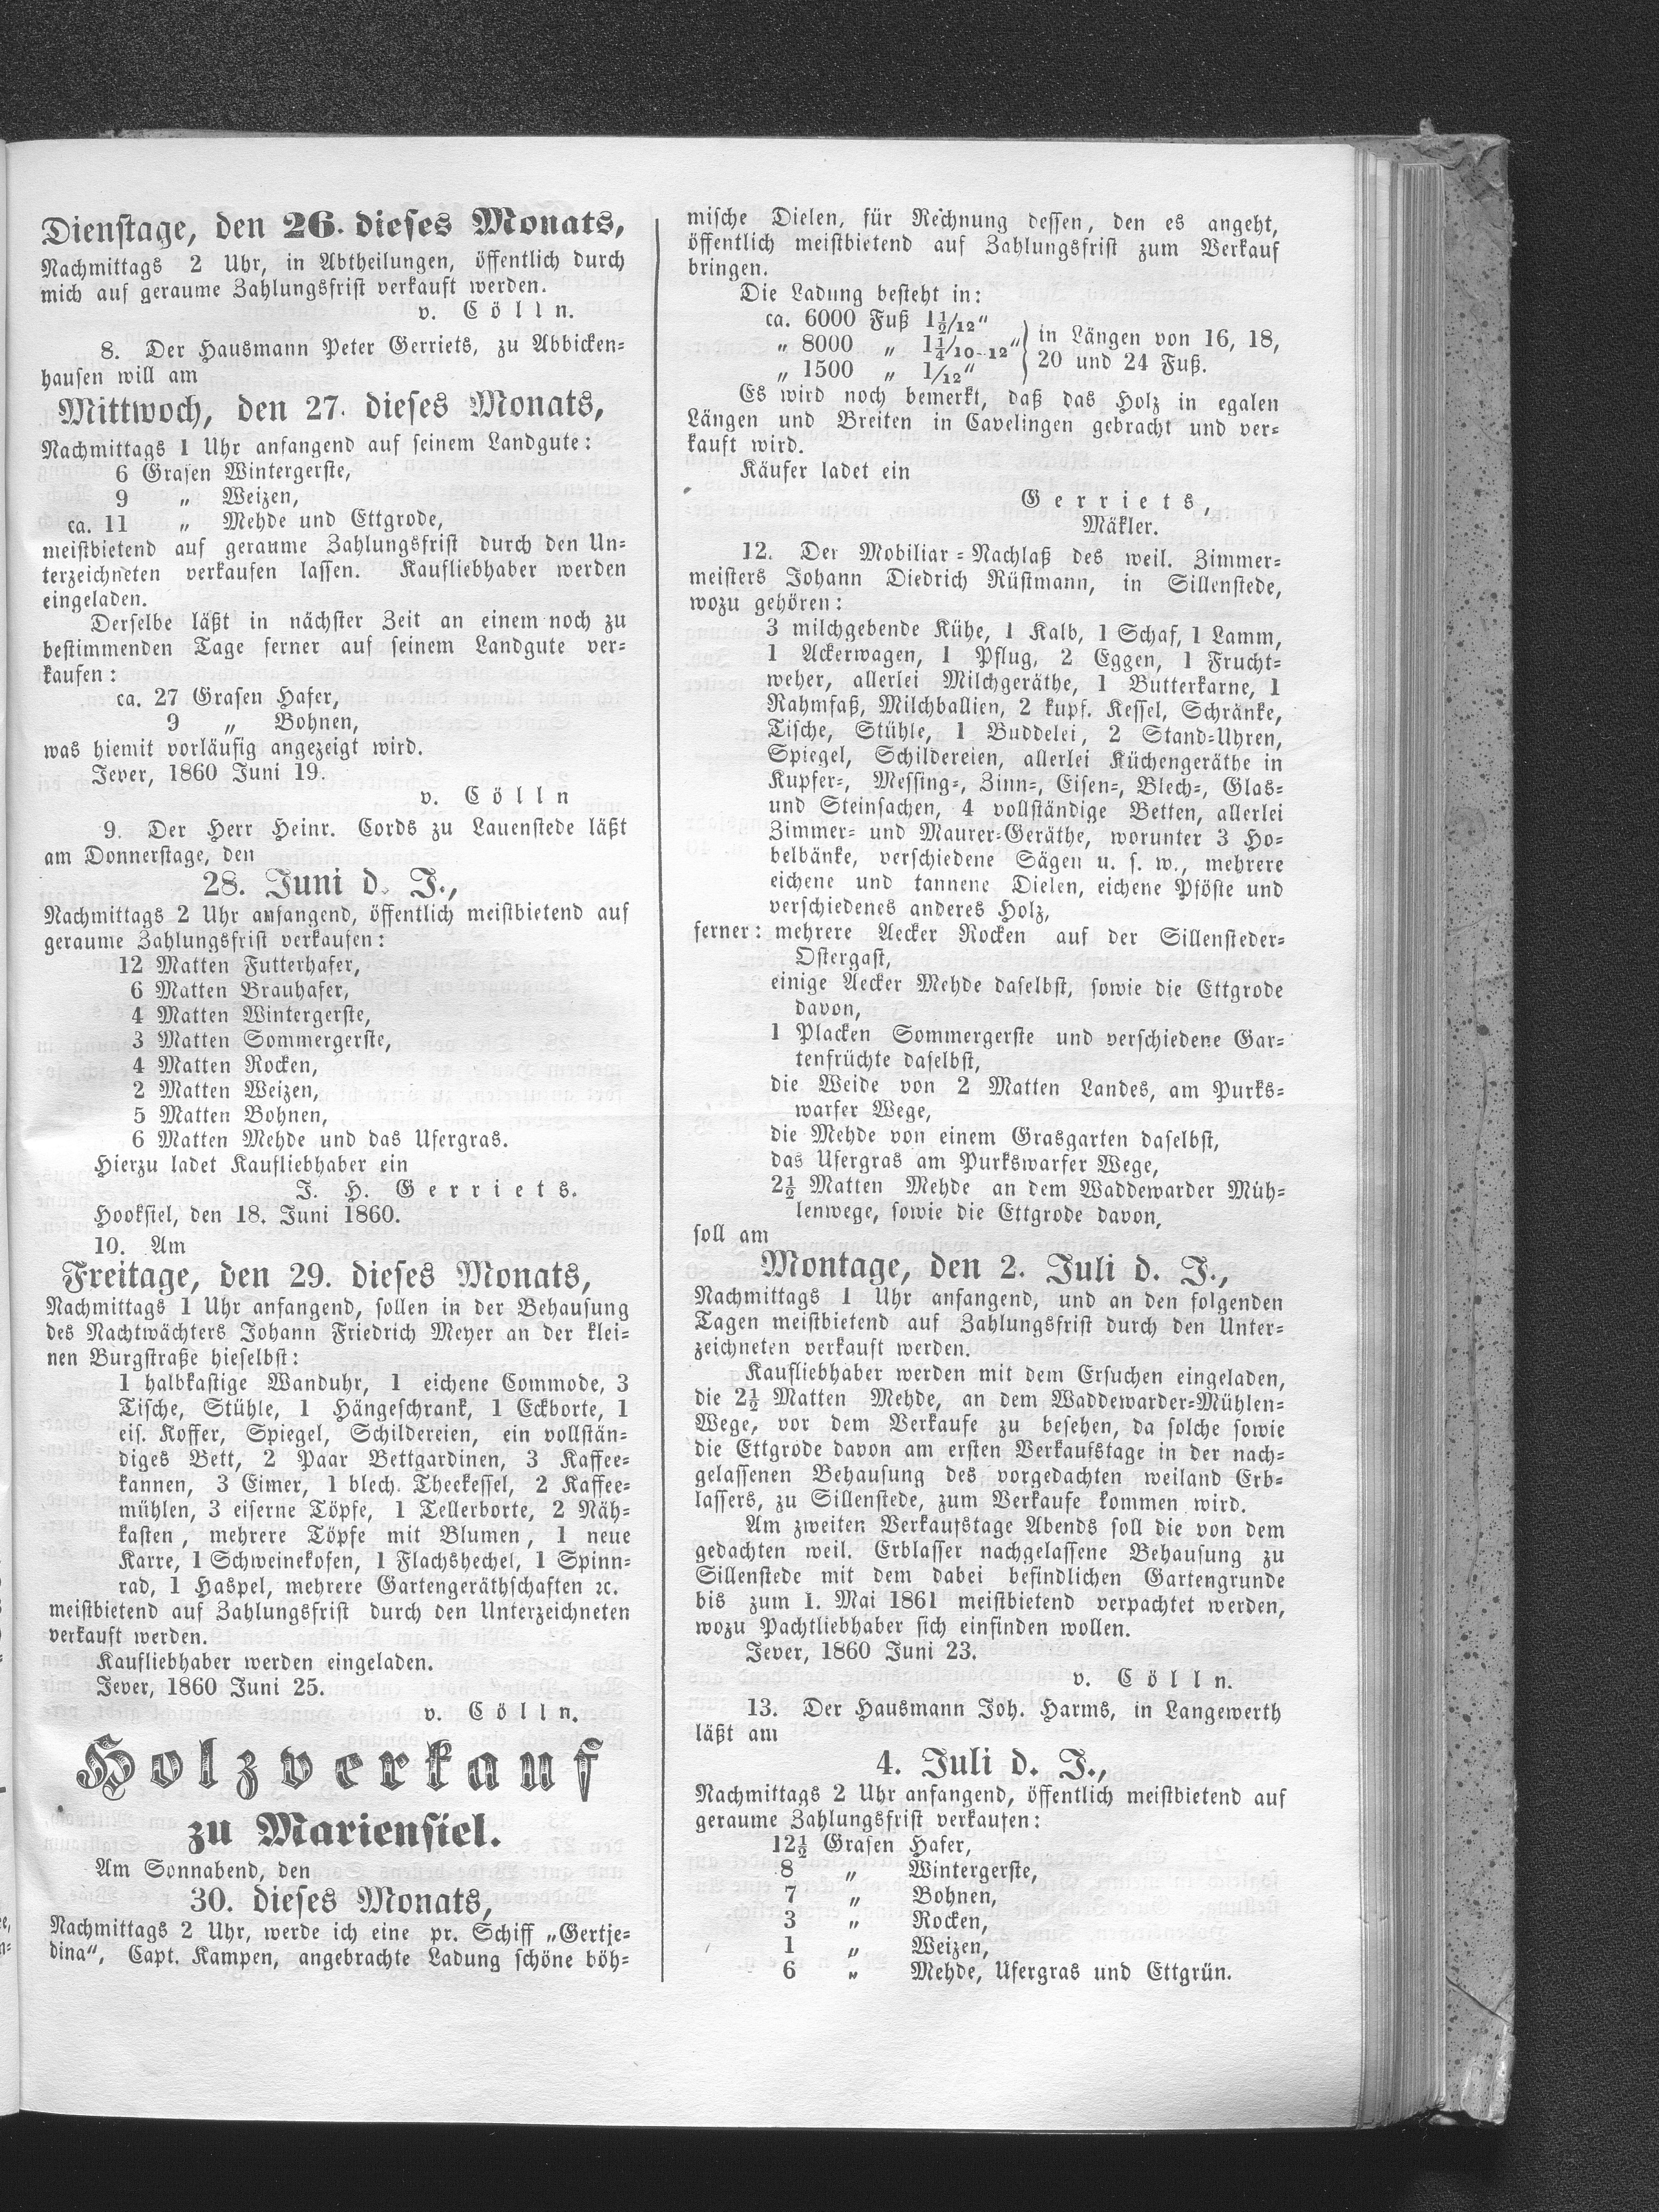 Dienstage, den 26. dieses Monats,
Nachmittags 2 Uhr, in Abtheilungen, öffentlich durch
mich auf geraume Zahlungsfrist verkauft werden.
v. Cölln.
8. Der Hausmann Peter Gerriets, zu Abbicken=
hausen will am
Mittwoch, den 27. dieses Monats,
Nachmittags 1 Uhr anfangend auf seinem Landgute:
6 Grasen Wintergerste,
9 „ Weizen,
ca. 11 „ Mehde und Ettgrode,
meistbietend auf geraume Zahlungsfrist durch den Un=
terzeichneten verkaufen lassen. Kaufliebhaber werden
eingeladen.
Derselbe läßt in nächster Zeit an einem noch zu
bestimmenden Tage ferner auf seinem Landgute ver=
kaufen:
ca. 27 Grasen Hafer,
9 „ Bohnen,
was hiemit vorläufig angezeigt wird.
Jever, 1860 Juni 19.
v. Cölln
9. Der Herr Heinr. Cords zu Lauenstede läßt
am Donnerstage, den
28. Juni d. J.,
Nachmittags 2 Uhr anfangend, öffentlich meistbietend auf
geraume Zahlungsfrist verkaufen:
12 Matten Futterhafer,
6 Matten Brauhafer,
4 Matten Wintergerste,
3 Matten Sommergerste,
4 Matten Rocken,
2 Matten Weizen,
5 Matten Bohnen,
6 Matten Mehde und das Ufergras.
Hierzu ladet Kaufliebhaber ein
J. H. Gerriets.
Hooksiel, den 18. Juni 1860.
10. Am
Freitage, den 29. dieses Monats,
Nachmittags 1 Uhr anfangend, sollen in der Behausung
des Nachtwächters Johann Friedrich Meyer an der klei=
nen Burgstraße hieselbst:
1 halbkastige Wanduhr, 1 eichene Commode, 3
Tische, Stühle, 1 Hängeschrank, 1 Eckborte, 1
eis. Koffer, Spiegel, Schildereien, ein vollstän=
diges Bett, 2 Paar Bettgardinen, 3 Kaffee=
kannen, 3 Eimer, 1 blech. Theekessel, 2 Kaffee=
mühlen, 3 eiserne Töpfe, 1 Tellerborte, 2 Näh=
kasten, mehrere Töpfe mit Blumen, 1 neue
Karre, 1 Schweinekofen, 1 Flachshechel, 1 Spinn=
rad, 1 Haspel, mehrere Gartengeräthschaften ꝛc.
meistbietend auf Zahlungsfrist durch den Unterzeichneten
verkauft werden.
Kaufliebhaber werden eingeladen.
Jever, 1860 Juni 25.
v. Cölln.
Holzverkauf
zu Mariensiel.
Am Sonnabend, den
30. dieses Monats,
Nachmittags 2 Uhr, werde ich eine pr. Schiff „Gertje=
dina“, Capt. Kampen, angebrachte Ladung schöne böh=
mische Dielen, für Rechnung dessen, den es angeht,
öffentlich meistbietend auf Zahlungsfrist zum Verkauf
bringen.
Die Ladung besteht in:
ca. 6000 Fuß 1½/12“
„ 8000 „ 1¼/10–12“ in Längen von 16, 18,
„ 1500 „ 1/12“ 20 und 24 Fuß.
Es wird noch bemerkt, daß das Holz in egalen
Längen und Breiten in Cavelingen gebracht und ver=
kauft wird.
Käufer ladet ein
Gerriets,
Mäkler.
12. Der Mobiliar=Nachlaß des weil. Zimmer=
meisters Johann Diedrich Rüstmann, in Sillenstede,
wozu gehören:
3 milchgebende Kühe, 1 Kalb, 1 Schaf, 1 Lamm,
1 Ackerwagen, 1 Pflug, 2 Eggen, 1 Frucht=
weher, allerlei Milchgeräthe, 1 Butterkarne, 1
Rahmfaß, Milchballien, 2 kupf. Kessel, Schränke,
Tische, Stühle, 1 Buddelei, 2 Stand=Uhren,
Spiegel, Schildereien, allerlei Küchengeräthe in
Kupfer=, Messing=, Zinn=, Eisen=, Blech=, Glas=
und Steinsachen, 4 vollständige Betten, allerlei
Zimmer= und Maurer=Geräthe, worunter 3 Ho=
belbänke, verschiedene Sägen u. s. w., mehrere
eichene und tannene Dielen, eichene Pföste und
verschiedenes anderes Holz,
ferner: mehrere Aecker Rocken auf der Sillensteder=
Ostergast,
einige Aecker Mehde daselbst, sowie die Ettgrode
davon,
1 Placken Sommergerste und verschiedene Gar=
tenfrüchte daselbst,
die Weide von 2 Matten Landes, am Purks=
warfer Wege,
die Mehde von einem Grasgarten daselbst,
das Ufergras am Purkswarfer Wege,
2½ Matten Mehde an dem Waddewarder Müh=
lenwege, sowie die Ettgrode davon,
soll am
Montage, den 2. Juli d. J.,
Nachmittags 1 Uhr anfangend, und an den folgenden
Tagen meistbietend auf Zahlungsfrist durch den Unter=
zeichneten verkauft werden.
Kaufliebhaber werden mit dem Ersuchen eingeladen,
die 2½ Matten Mehde, an dem Waddewarder=Mühlen=
Wege, vor dem Verkaufe zu besehen, da solche sowie
die Ettgrode davon am ersten Verkaufstage in der nach=
gelassenen Behausung des vorgedachten weiland Erb=
lassers, zu Sillenstede, zum Verkaufe kommen wird.
Am zweiten Verkaufstage Abends soll die von dem
gedachten weil. Erblasser nachgelassene Behausung zu
Sillenstede mit dem dabei befindlichen Gartengrunde
bis zum 1. Mai 1861 meistbietend verpachtet werden,
wozu Pachtliebhaber sich einfinden wollen.
Jever, 1860 Juni 23.
v. Cölln.
13. Der Hausmann Joh. Harms, in Langewerth
läßt am
4. Juli d. J.,
Nachmittags 2 Uhr anfangend, öffentlich meistbietend auf
geraume Zahlungsfrist verkaufen:
12½ Grasen Hafer,
8 „ Wintergerste,
7 „ Bohnen,
3 „ Rocken,
1 „ Weizen,
6 „ Mehde, Ufergras und Ettgrün.